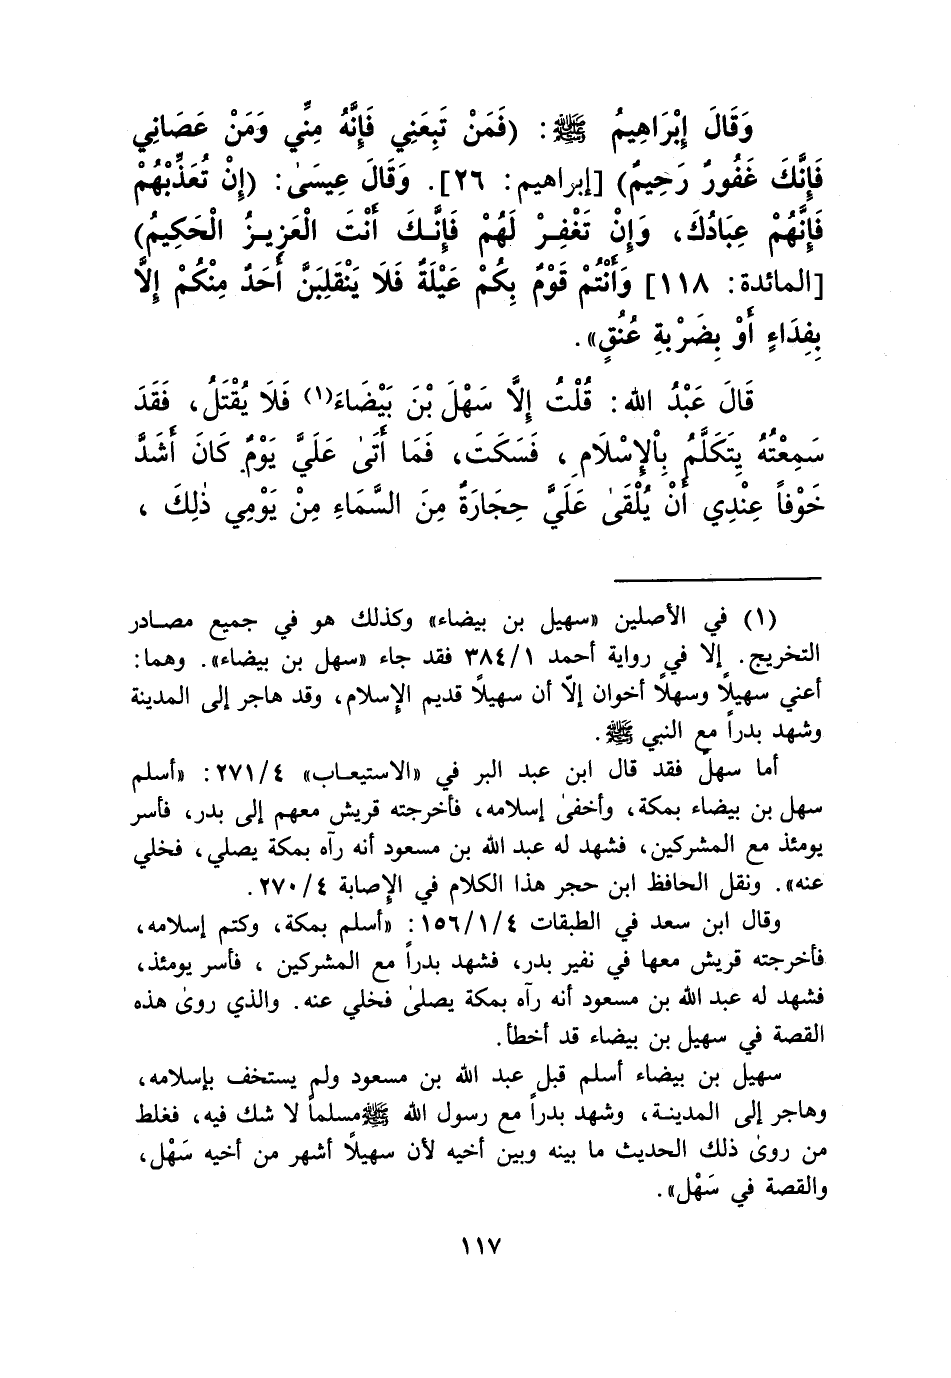 وَقَالَ إِبْرَاهِيمُ ﷺ : (فَمَنْ تَبِعَنِي فَإِنَّهُ مِنِّي وَمَنْ عَصَانِي
فَإِنَّكَ غَفُورٌ رَحِيمٌ) [إبراهيم: ٢٦]. وَقَالَ عِيسَىٰ: (إِنْ تُعَذِّبْهُمْ
فَإِنَّهُمْ عِبَادُكَ، وَإِنْ تَغْفِـرْ لَهُمْ فَإِنَّـكَ أَنْتَ الْعَزِيـزُ الْحَكِيمُ)
[المائدة: ١١٨] وَأَنْتُمْ قَوْمٌ بِكُمْ عَيْلَةٌ فَلَا يَنْقَلِبَنَّ أَحَدٌ مِنْكُمْ إِلَّا
بِفِدَاءٍ أَوْ بِضَرْبةِ عُنُقٍ».
قَالَ عَبْدُ الله: قُلْتُ إِلَّا سَهْلَ بْنَ بَيْضَاءَ(١) فَلَا يُقْتَلُ، فَقَدَ
سَمِعْتُهُ يَتَكَلَّمُ بِاْلإِسْلَامِ، فَسَكَتَ، فَمَا أَتَىٰ عَلَيَّ يَوْمٌ كَانَ أَشَدَّ
خَوْفاً عِنْدِي أَنْ يُلْقَىٰ عَلَيَّ حِجَارَةٌ مِنَ السَّمَاءِ مِنْ يَوْمِي ذٰلِكَ ،
(١) في الأصلين «سهيل بن بيضاء» وكذلك هو في جميع مصـادر
التخريج. إلا في رواية أحمد ٣٨٤/١ فقد جاء «سهل بن بيضاء». وهما:
أعني سهيلًا وسهلًا أخوان إلّا أن سهيلًا قديم الإسلام، وقد هاجر إلى المدينة
وشهد بدراً مع النبي ﷺ.
أما سهلٌ فقد قال ابن عبد البر في «الاستيعـاب» ٢٧١/٤: «أسلم
سهل بن بيضاء بمكة، وأخفىٰ إسلامه، فأخرجته قريش معهم إلى بدر، فأسر
يومئذ مع المشركين، فشهد له عبد الله بن مسعود أنه رآه بمكة يصلي، فخلي
عنه». ونقل الحافظ ابن حجر هذا الكلام في الإصابة ٢٧٠/٤.
وقال ابن سعد في الطبقات ١٥٦/١/٤: «أسلم بمكة، وكتم إسلامه،
فأخرجته قريش معها في نفير بدر، فشهد بدراً مع المشركين ، فأسر يومئذ،
فشهد له عبد الله بن مسعود أنه رآه بمكة يصلىٰ فخلي عنه. والذي روىٰ هذه
القصة في سهيل بن بيضاء قد أخطأ.
سهيل بن بيضاء أسلم قبل عبد الله بن مسعود ولم يستخف بإسلامه،
وهاجر إلى المدينـة، وشهد بدراً مع رسول الله ﷺ مسلماً لا شك فيه، فغلط
من روىٰ ذلك الحديث ما بينه وبين أخيه لأن سهيلًا أشهر من أخيه سَهْل،
والقصة في سَهْل».
١١٧